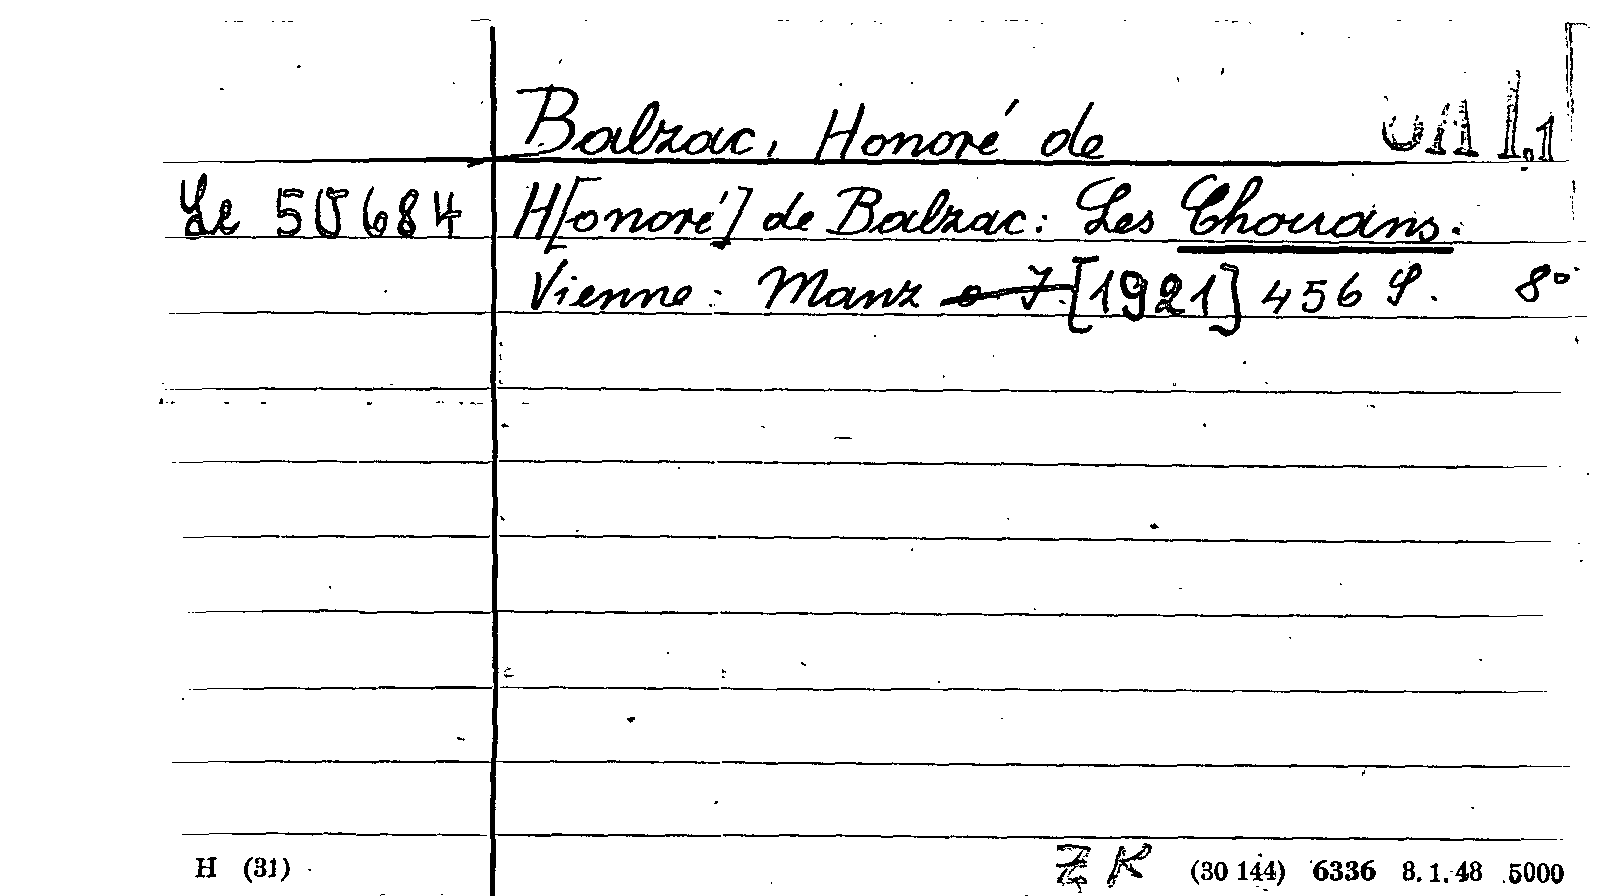 Balzac, Honoré de UA I.1
Le 50684 H[onoré] de Balzac: Les Chouans.
Vienne: Manz o. J. [1921] 456 S. 8°
H (31) ZK (30 144) 6336 8.1.48 5000